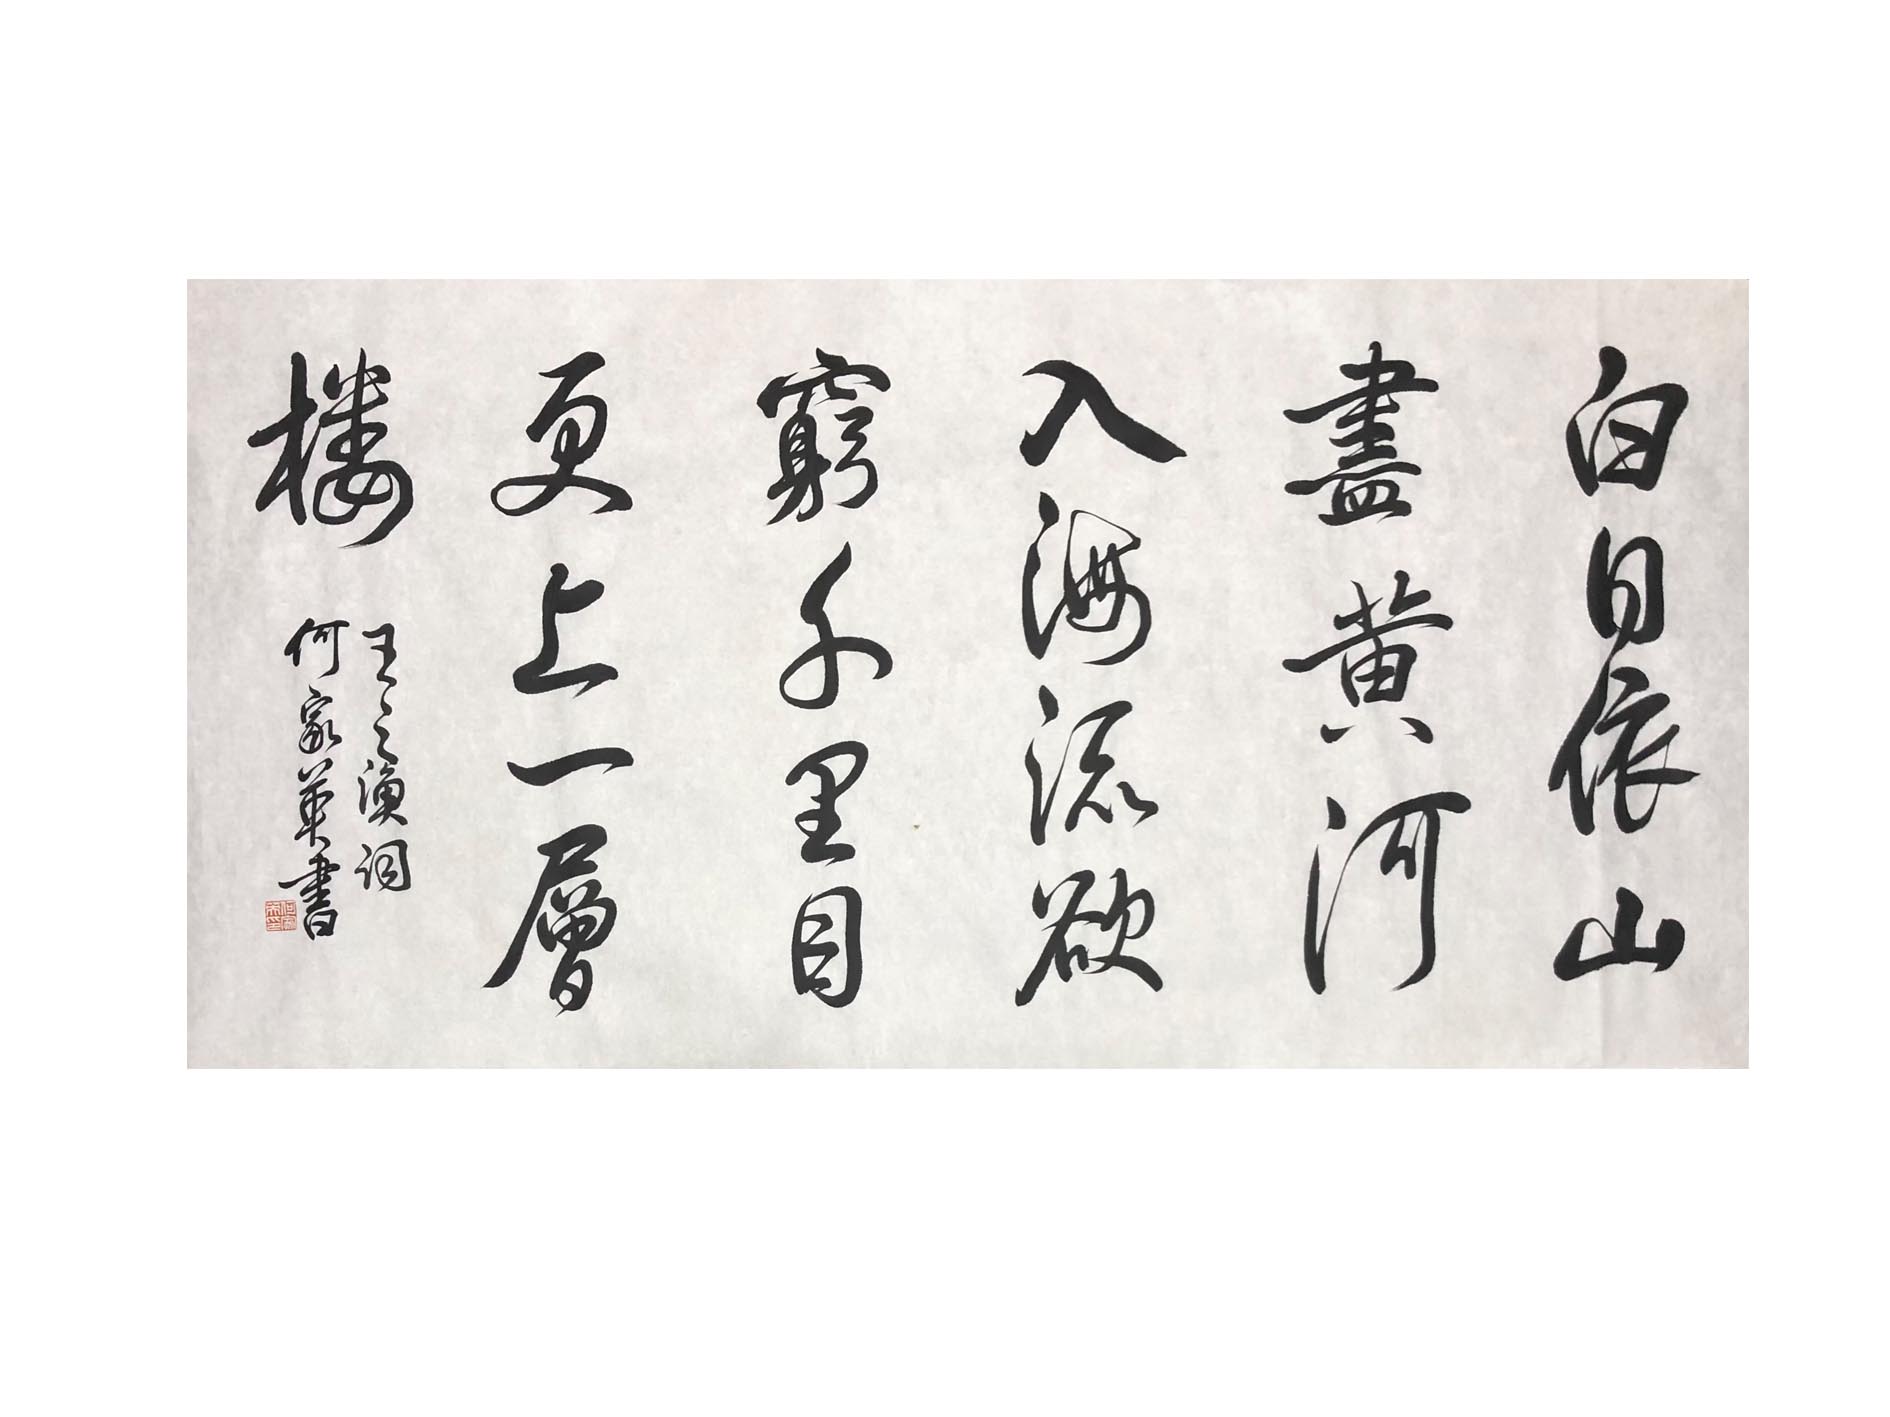 白日依山
盡黄河
入海流欲
窮千里目
更上一層
楼
王之渙词
何家英書